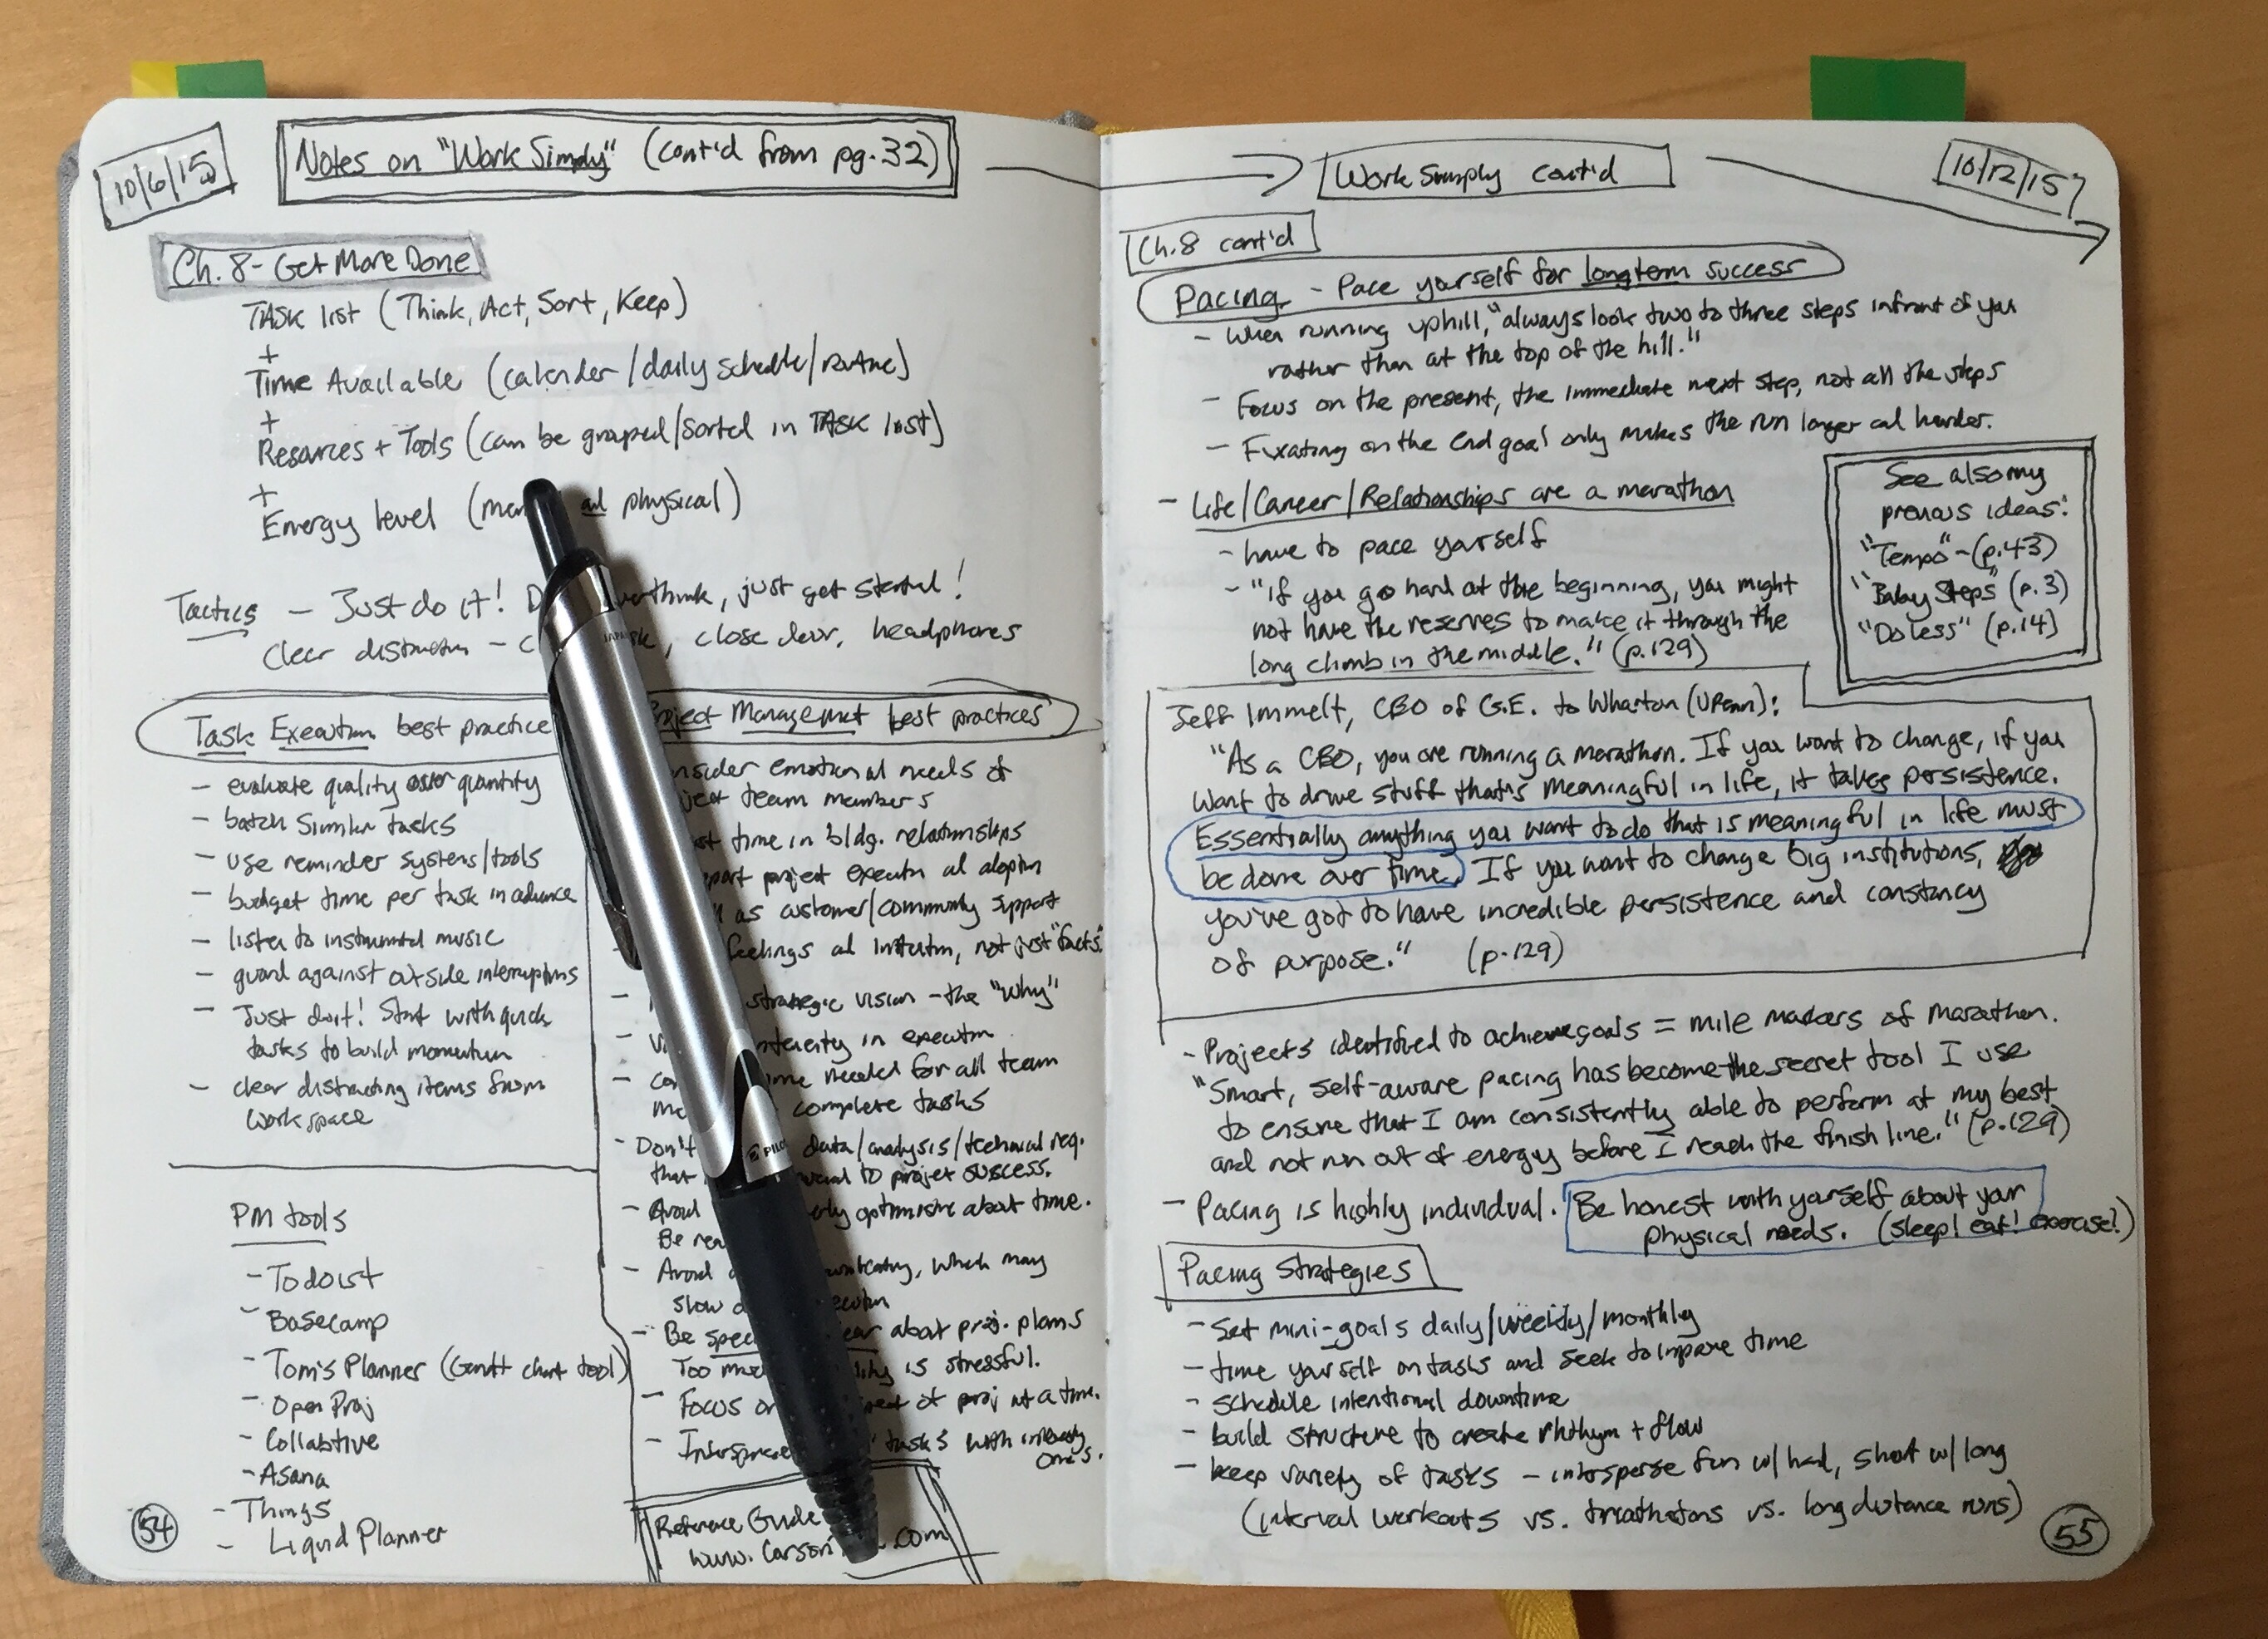 10/6/15
Notes on "Work Simply" (cont'd from pg. 32)
Ch. 8 - Get More Done
TASK list (Think, Act, Sort, Keep)
+
Time Available (calender/daily schedule/routine)
+
Resources + Tools (can be grouped/sorted in TASK list)
+
Energy level ( and physical)
Tactics - Just do it! just get started!
Clear distraction - close door, headphones
Task Execution best practice
- evaluate quality over quantity
- batch similar tasks
- use reminder systems/tools
- budget time per task in advance
- listen to instrumental music
- guard against outside interruptions
- Just do it! Start with quick
tasks to build momentum
- clear distracting items from
workspace
PM tools
- Todoist
- Basecamp
- Tom's Planner (Gantt chart tool)
- Open Proj
- Collabtive
- Asana
- Things
- Liquid Planner
54
Project Management best practices
emotional needs of
team members
time in bldg. relationships
project execution and adoption
as customer/community support
feelings and intuition, not just "facts"
strategic vision - the "why"
in execution
needed for all team
complete tasks
- Don't data/analysis/technical req.
that to project success.
- Avoid optimistic about time.
Be
- Avoid , which may
slow
- Be about proj. plans
Too is stressful.
- Focus on of proj at a time.
- Intersperse tasks with
one's.
Reference Guide
www. .com
Work Simply cont'd
10/12/15
Ch. 8 cont'd
Pacing - Pace yourself for longterm success
- When running uphill, "always look two to three steps infront of you
rather than at the top of the hill."
- Focus on the present, the immediate next step, not all the steps
- Fixating on the end goal only makes the run longer and harder.
- Life/Career/Relationships are a marathon
- have to pace yourself
- "If you go hard at the beginning, you might
not have the reserves to make it through the
long climb in the middle." (p.129)
See also my
previous ideas:
"Tempo" - (p.43)
"Baby Steps" (p.3)
"Do less" (p.14)
Jeff Immelt, CEO of G.E. to Wharton (UPenn):
"As a CEO, you are running a marathon. If you want to change, if you
want to drive stuff that's meaningful in life, it takes persistence.
Essentially anything you want to do that is meaningful in life must
be done over time. If you want to change big institutions,
you've got to have incredible persistence and constancy
of purpose." (p.129)
- Projects identified to achieve goals = mile markers of marathon.
"Smart, self-aware pacing has become the secret tool I use
to ensure that I am consistently able to perform at my best
and not run out of energy before I reach the finish line." (p.129)
- Pacing is highly individual. Be honest with yourself about your
physical needs. (sleep! eat! exercise!)
Pacing Strategies
- Set mini-goals daily/weekly/monthly
- time yourself on tasks and seek to improve time
- schedule intentional downtime
- build structure to create rhthym + flow
- keep variety of tasks - intersperse fun w/ hard, short w/ long
(interval workouts vs. triathatons vs. long distance runs)
55
PILOT